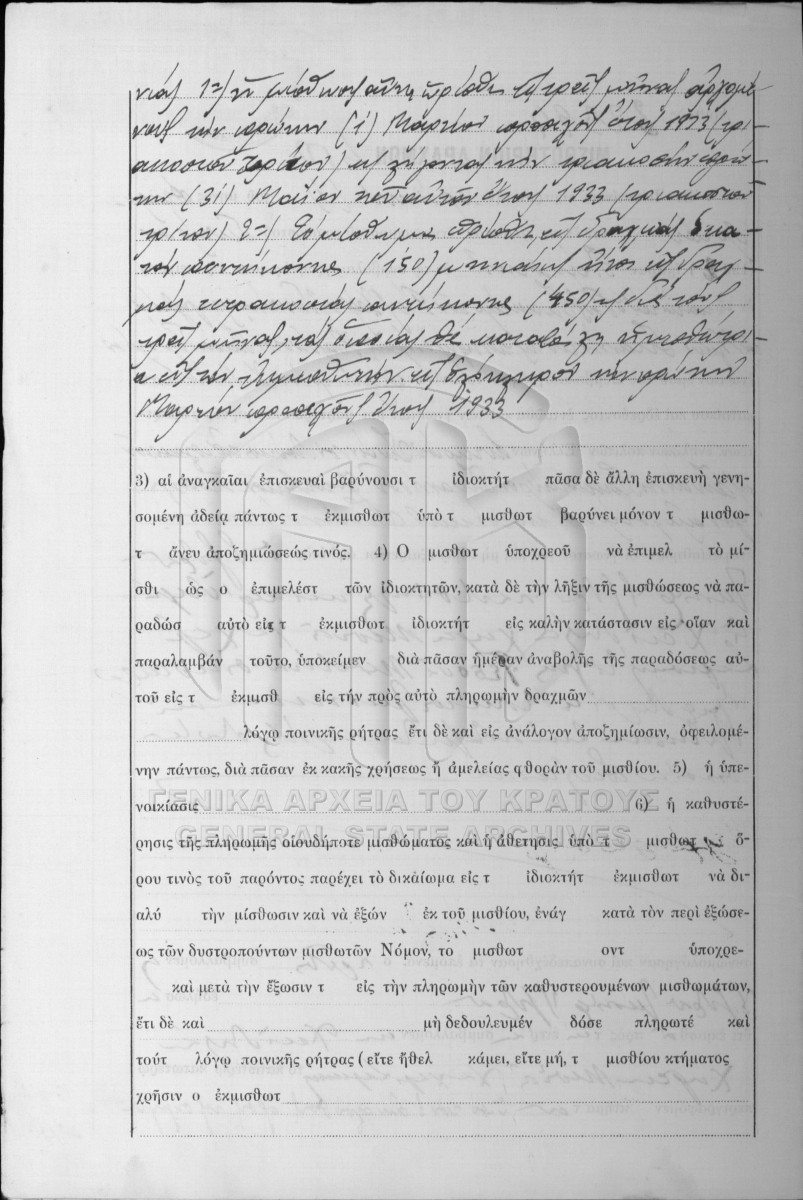 νίας 1ον) ἡ μίσθωσις αὕτη ὡρίσθη εἰς τρεῖς μῆνας ἀρχομέ-
νους τὴν πρώτην (1) Μαρτίου προσεχοῦς ἔτους 1933 (τρι-
ακοστοῦ τρίτου) καὶ λήγοντας τὴν τριακοστὴν πρώ-
την (31) Μαΐου τοῦ αὐτοῦ ἔτους 1933 τριακοστοῦ
τρίτου) 2ον) Τὸ μίσθωμα ὡρίσθη εἰς δραχμὰς ἑκα-
τὸν πεντήκοντα (150) μηνιαίως ἤτοι εἰς δραχ-
μὰς τετρακοσίας πεντήκοντα (450) διὰ τοὺς
τρεῖς μῆνας, τὰς ὁποίας θὰ καταβάλῃ ἡ μισθώτρι-
α εἰς τὴν ἐκμισθώτριαν εἰς ὁλόκληρον τὴν πρώτην
Μαρτίου προσεχοῦς ἔτους 1933
3) αἱ ἀναγκαῖαι ἐπισκευαὶ βαρύνουσι τ ἰδιοκτήτ πᾶσα δὲ ἄλλη ἐπισκευὴ γενη-
σομένη ἀδείᾳ πάντως τ ἐκμισθωτ ὑπὸ τ μισθωτ βαρύνει μόνον τ μισθω-
τ ἄνευ ἀποζημιώσεώς τινος. 4) Ο μισθωτ ὑποχρεοῦ νὰ ἐπιμελ τὸ μί-
σθι ὡς ο ἐπιμελέστ τῶν ἰδιοκτητῶν, κατὰ δὲ τὴν λῆξιν τῆς μισθώσεως νὰ πα-
ραδώσ αὐτὸ εἰς τ ἐκμισθωτ ἰδιοκτήτ εἰς καλὴν κατάστασιν εἰς οἵαν καὶ
παραλαμβάν τοῦτο, ὑποκείμεν διὰ πᾶσαν ἡμέραν ἀναβολῆς τῆς παραδόσεως αὐ-
τοῦ εἰς τ ἐκμισθ εἰς τὴν πρὸς αὐτὸ πληρωμὴν δραχμῶν
λόγῳ ποινικῆς ρήτρας ἔτι δὲ καὶ εἰς ἀνάλογον ἀποζημίωσιν, ὀφειλομέ-
νην πάντως, διὰ πᾶσαν ἐκ κακῆς χρήσεως ἢ ἀμελείας φθορὰν τοῦ μισθίου. 5) ἡ ὑπε-
νοικίασις 6) ἡ καθυστέ-
ΓΕΝΙΚΑ ΑΡΧΕΙΑ ΤΟΥ ΚΡΑΤΟΥΣ
GENERAL STATE ARCHIVES
ρησις τῆς πληρωμῆς οἱουδήποτε μισθώματος καὶ ἡ ἀθέτησις ὑπὸ τ μισθωτ ὅ-
ρου τινὸς τοῦ παρόντος παρέχει τὸ δικαίωμα εἰς τ ἰδιοκτήτ ἐκμισθωτ νὰ δι-
αλύ τὴν μίσθωσιν καὶ νὰ ἐξών ἐκ τοῦ μισθίου, ἐνάγ κατὰ τὸν περὶ ἐξώσε-
ως τῶν δυστροπούντων μισθωτῶν Νόμον, το μισθωτ οντ ὑποχρε-
καὶ μετὰ τὴν ἔξωσιν τ εἰς τὴν πληρωμὴν τῶν καθυστερουμένων μισθωμάτων,
ἔτι δὲ καὶ μὴ δεδουλευμέν δόσε πληρωτέ καὶ
τούτ λόγῳ ποινικῆς ρήτρας (εἴτε ἤθελ κάμει, εἴτε μή, τ μισθίου κτήματος
χρῆσιν ο ἐκμισθωτ